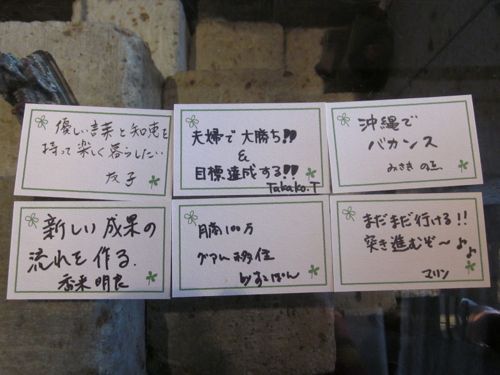 優しい言葉と知恵を
持って楽しく暮らしたい
友子
夫婦で大勝ち!!
&
目標達成する!!
Takako.T
沖縄で
バカンス
みさき
新しい成果の
流れを作る.
香米明衣
月商100万
グアム移住
by すこぽん
まだまだ行ける!!
突き進むぞ〜♪♪
マリン